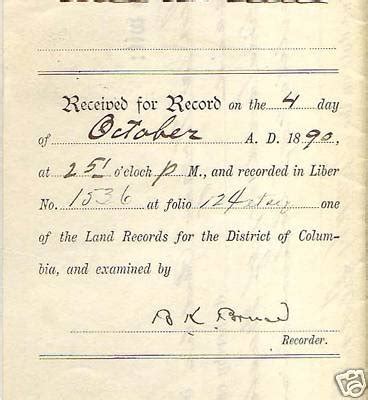 Received for Record on the 4 day
of October A. D. 1890,
at 251 o'clock P M., and recorded in Liber
No. 1536 at folio 124 et seq one
of the Land Records for the District of Colum-
bia, and examined by
B K Bruce
Recorder.
ebay